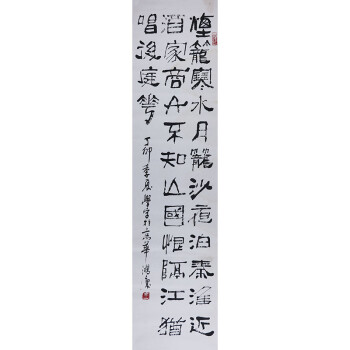 煙籠寒水月籠沙夜泊秦淮近
酒家商女不知亡國恨隔江猶
唱後庭花
丁卯季夏學字於京華